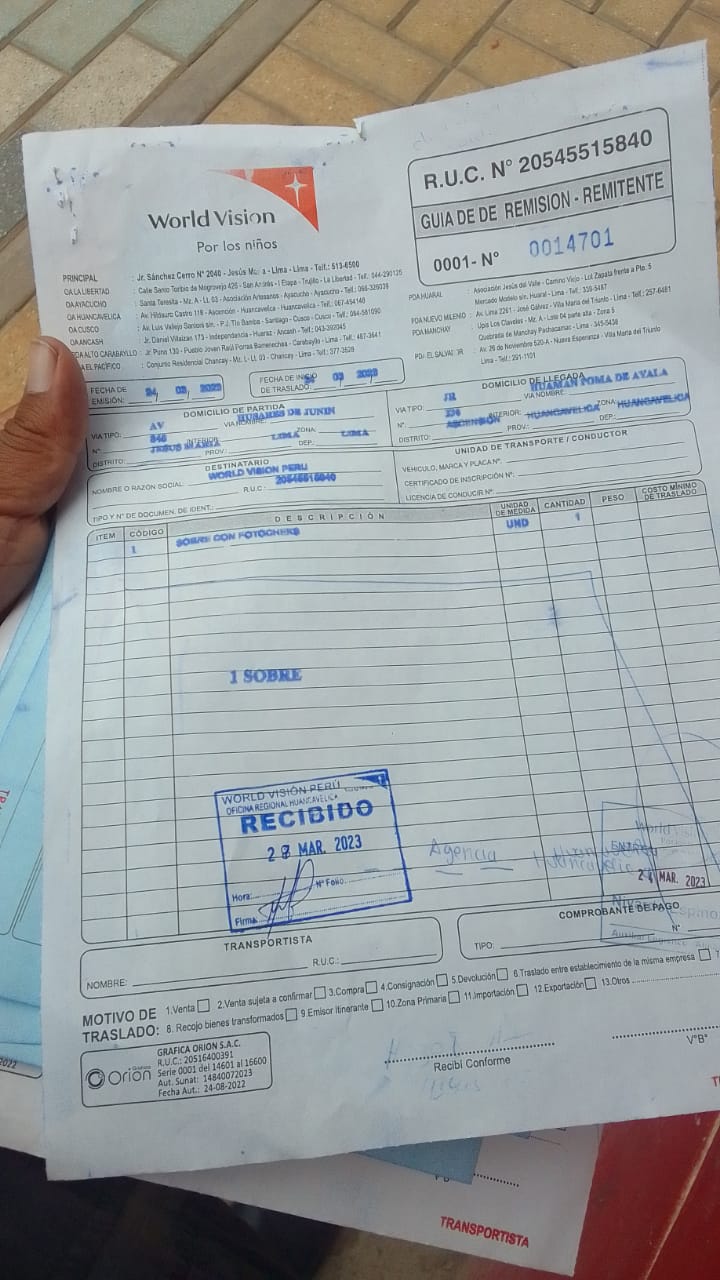 World Vision
Por los niños
R.U.C. N° 20545515840
GUIA DE DE REMISION - REMITENTE
0001- N° 0014701
PRINCIPAL : Jr. Sánchez Cerro N° 2040 - Jesús - Lima - Lima - Telf.: 513-6500
OA LA LIBERTAD : Calle Santo Toribio de Mogrovejo 426 - San Andrés - I Etapa - Trujillo - La Libertad - Telf.: 044-290135
OA AYACUCHO : Santa Teresita - Mz. A - Lt. 03 - Asociación Artesanos - Ayacucho - Ayacucho - Telf.: 066-326039
OA HUANCAVELICA : Av. Hildauro Castro 118 - Ascención - Huancavelica - Huancavelica - Telf.: 067-454148
OA CUSCO : Av. Luis Vallejo Santoni s/n. - P.J. Tio Bamba - Santiago - Cusco - Cusco - Telf.: 084-581090
OA ANCASH : Jr. Daniel Villaizan 173 - Independencia - Huaraz - Ancash - Telf.: 043-392045
ALTO CARABAYLLO : Jr. Puno 130 - Pueblo Joven Raúl Porras Barrenechea - Carabayllo - Lima - Telf.: 487-3641
EL PACÍFICO : Conjunto Residencial Chancay - Mz. L - Lt. 03 - Chancay - Lima - Telf.: 377-3528
PDA HUARAL : Asociación Jesús del Valle - Camino Viejo - Lot. Zapata frente a Pto. 5
Mercado Modelo s/n. Huaral - Lima - Telf.: 335-5487
PDA NUEVO MILENIO : Av. Lima 2261 - José Gálvez - Villa María del Triunfo - Lima - Telf.: 257-6481
PDA MANCHAY : Upis Los Claveles - Mz. A - Lote 04 parte alta - Zona 5
Quebrada de Manchay Pachacamac - Lima - 345-5438
EL SALVADOR : Av. 26 de Noviembre 520-A - Nueva Esperanza - Villa María del Triunfo
Lima - Telf.: 291-1101
FECHA DE EMISIÓN: 24 03 2023
FECHA DE INICIO DE TRASLADO: 03 2023
DOMICILIO DE PARTIDA
VIA TIPO: AV VIA NOMBRE: HUSARES DE JUNIN
N° INTERIOR: ZONA:
DISTRITO: JESUS MARIA PROV: LIMA DEP.: LIMA
DOMICILIO DE LLEGADA
VIA TIPO: JR VIA NOMBRE: HUAMAN POMA DE AYALA
N°. INTERIOR: ZONA:
DISTRITO: ASCENSIÓN PROV.: HUANCAVELICA DEP.: HUANCAVELICA
DESTINATARIO
NOMBRE O RAZÓN SOCIAL: WORLD VISION PERU
R.U.C.: 20545515840
TIPO Y N° DE DOCUMEN. DE IDENT.:
UNIDAD DE TRANSPORTE / CONDUCTOR
VEHÍCULO, MARCA Y PLACA N°:
CERTIFICADO DE INSCRIPCIÓN N°:
LICENCIA DE CONDUCIR N°:
ITEM CÓDIGO DESCRIPCIÓN UNIDAD DE MEDIDA CANTIDAD PESO COSTO MÍNIMO DE TRASLADO
1 SOBRE CON FOTOCHEKS UND 1
1 SOBRE
WORLD VISIÓN PERÚ
OFICINA REGIONAL HUANCAVELICA
RECIBIDO
28 MAR. 2023
Hora: N° Folio:
Firma:
Agencia Huancavelica
World Vision
24 MAR. 2023
TRANSPORTISTA
NOMBRE: R.U.C.:
COMPROBANTE DE PAGO
TIPO: N°
MOTIVO DE TRASLADO: 1.Venta 2.Venta sujeta a confirmar 3.Compra 4.Consignación 5.Devolución 6.Traslado entre establecimiento de la misma empresa 7
8. Recojo bienes transformados 9.Emisor Itinerante 10.Zona Primaria 11.Importación 12.Exportación 13.Otros
Orión
GRAFICA ORION S.A.C.
R.U.C.: 20516400391
Serie 0001 del 14601 al 16600
Aut. Sunat: 14840072023
Fecha Aut.: 24-08-2022
Recibí Conforme
V°B°
TRANSPORTISTA